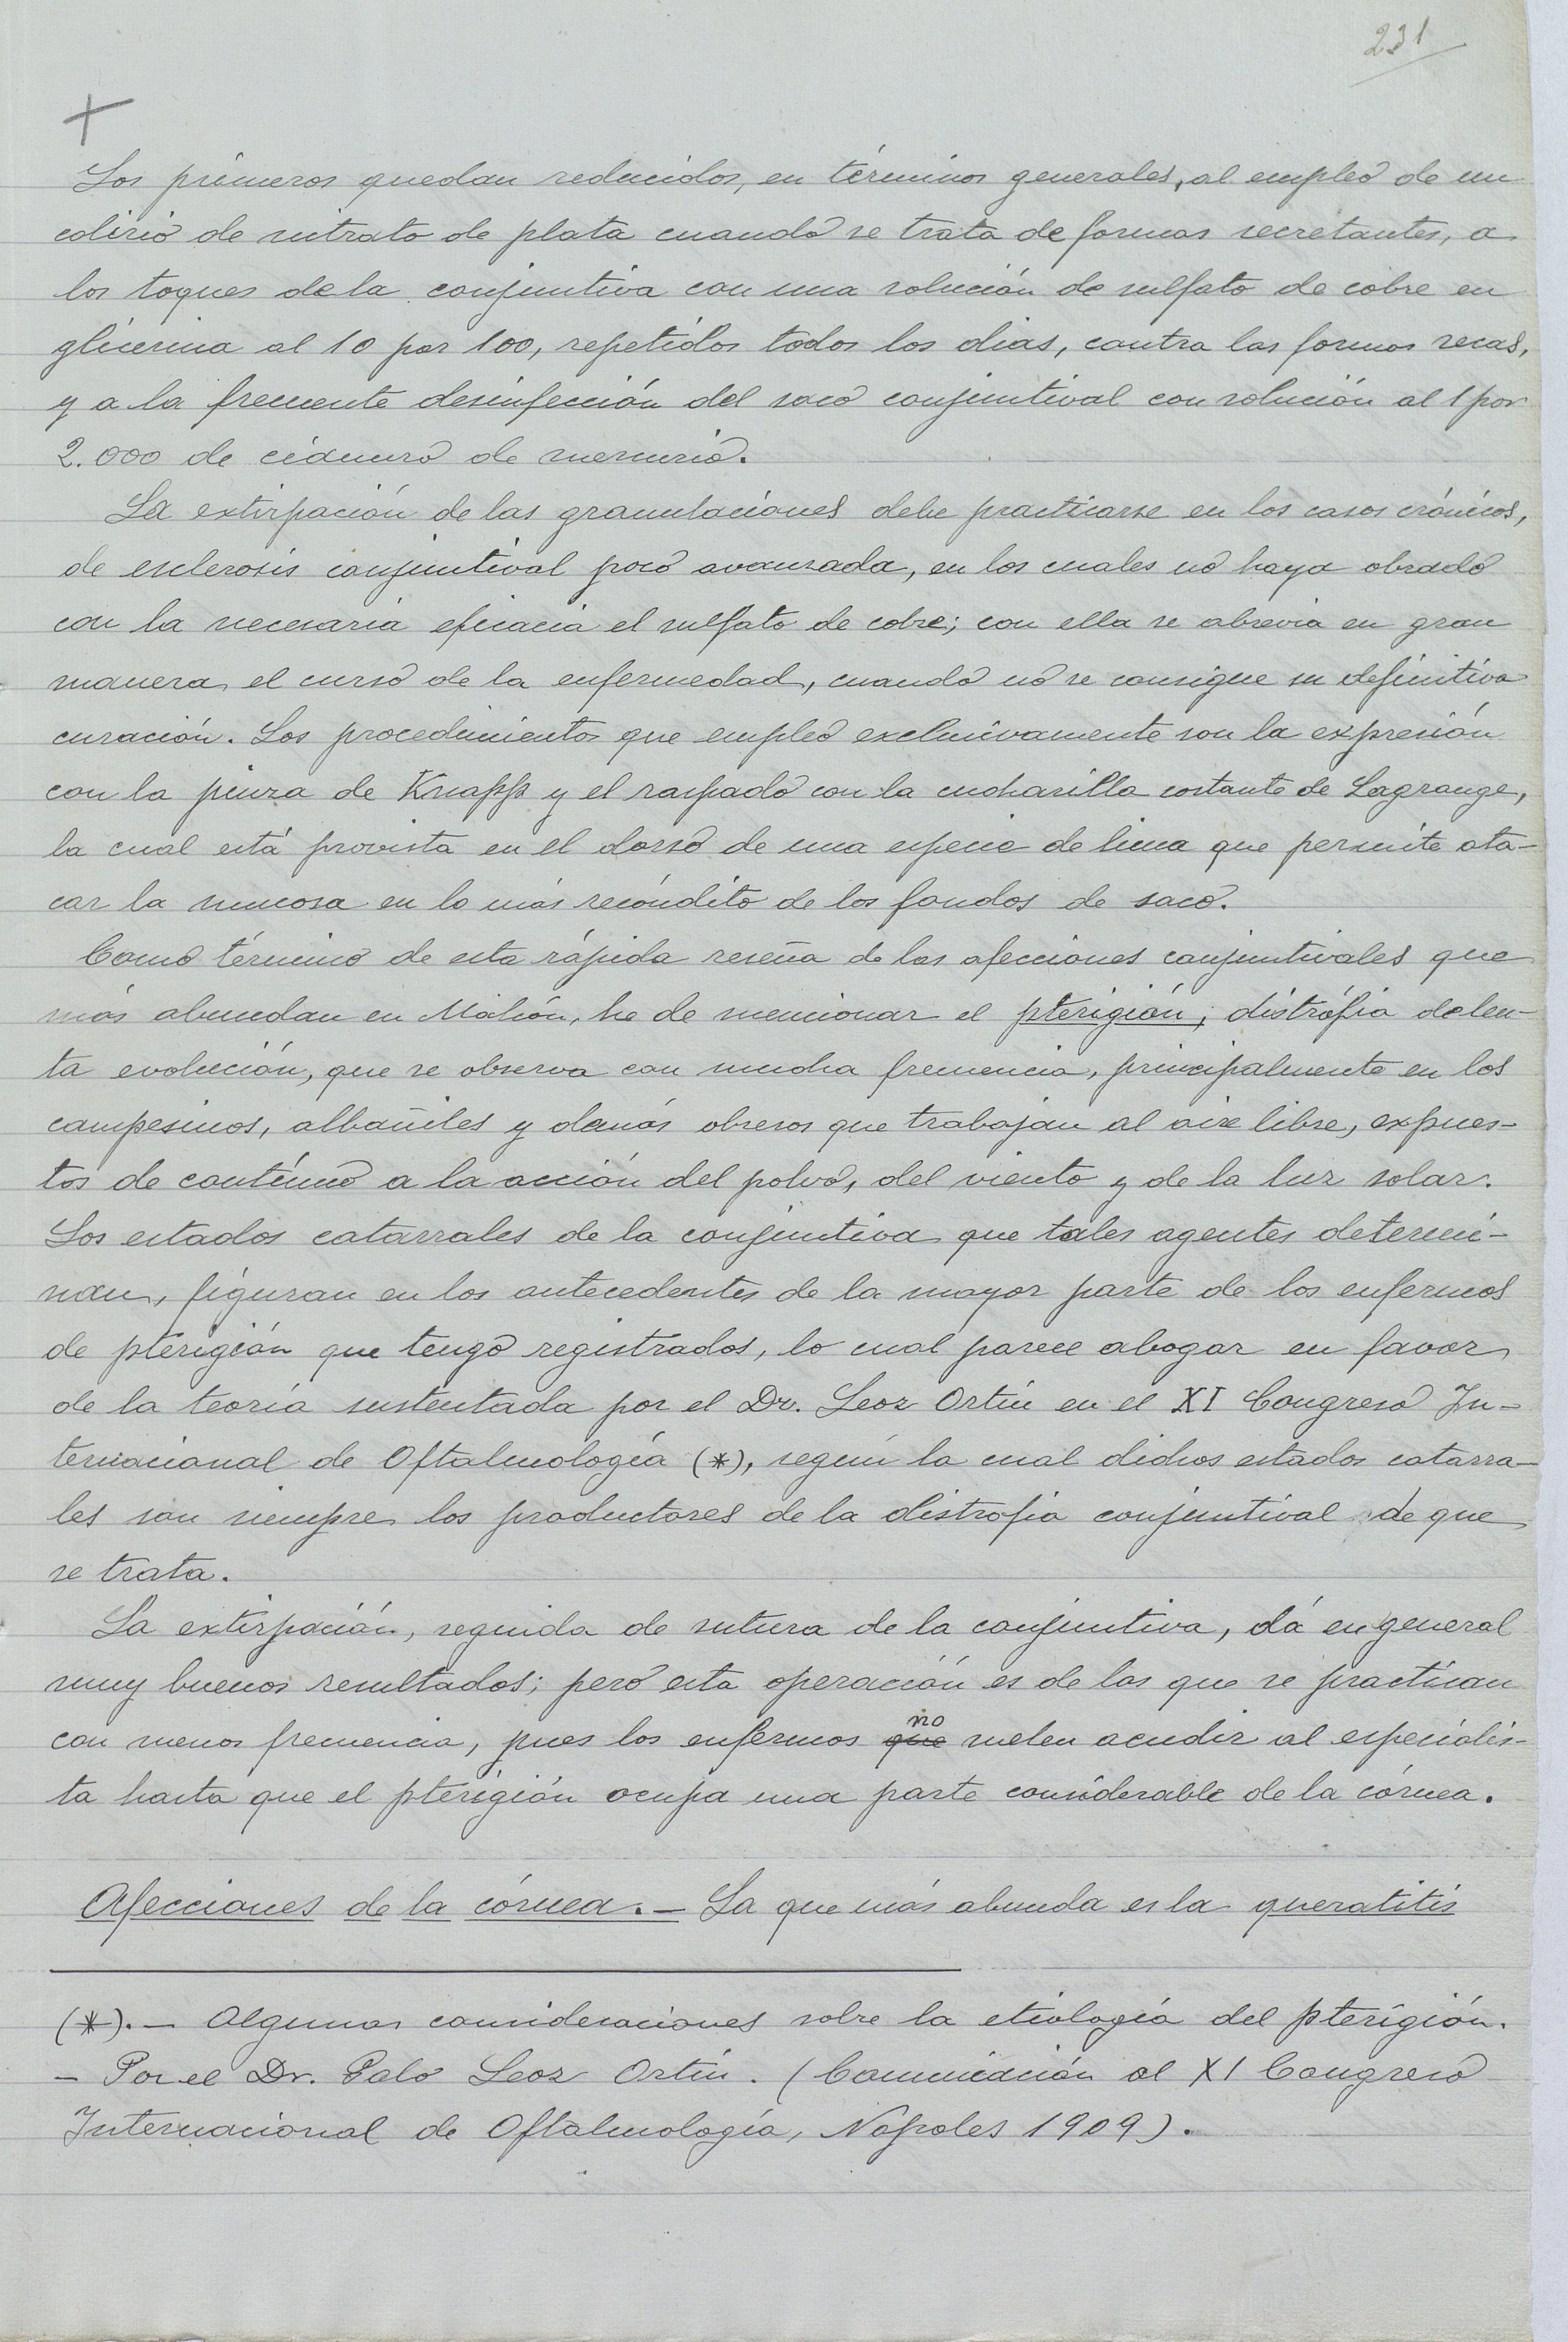 231
+
Los primeros quedan reducidos, en términos generales, al empleo de un
colirio de nitrato de plata cuando se trata de formas secretantes, a
los toques de la conjuntiva con una solución de sulfato de cobre en
glicerina al 10 por 100, repetidos todos los dias, contra las formas secas,
y a la frecuente desinfección del saco conjuntival con solución al 1 por
2.000 de cianuro de mercurio.
La extirpación de las granulaciones debe practicarse en los casos crónicos,
de esclerosis conjuntival poco avanzada, en los cuales no haya obrado
con la necesaria eficacia el sulfato de cobre; con ella se abrevia en gran
manera el curso de la enfermedad, cuando no se consigue su definitiva
curación. Los procedimientos que empleo exclusivamente son la expresión
con la pinza de Knapp y el raspado con la cucharilla cortante de Lagrange,
la cual está provista en el dorso de una especie de lima que permite ata-
car la mucosa en lo más recóndito de los fondos de saco.
Como término de esta rápida reseña de las afecciones conjuntivales que
más abundan en Mahón, he de mencionar el pterigión; distrófia de len-
ta evolución, que se observa con mucha frecuencia, principalmente en los
campesinos, albañiles y demás obreros que trabajan al aire libre, expues-
tos de contínuo a la acción del polvo, del viento y de la luz solar.
Los estados catarrales de la conjuntiva que tales agentes determi-
nan, figuran en los antecedentes de la mayor parte de los enfermos
de pterigión que tengo registrados, lo cual parece abogar en favor
de la teoría sustentada por el Dr. Leoz Ortín en el XI Congreso In-
ternacional de Oftalmología (*), según la cual dichos estados catarra-
les son siempre los productores de la distrofia conjuntival de que
se trata.
La extirpación, seguida de sutura de la conjuntiva, dá en general
muy buenos resultados; pero esta operación es de las que se practican
con menos frecuencia, pues los enfermos que no suelen acudir al especialis-
ta hasta que el pterigión ocupa una parte considerable de la córnea.
Afecciones de la córnea.- La que más abunda es la queratitis
(*).- Algunas consideraciones sobre la etiología del pterigión.
- Por el Dr. Galo Leoz Ortín. (Comunicación al XI Congreso
Internacional de Oftalmología, Nápoles 1909).